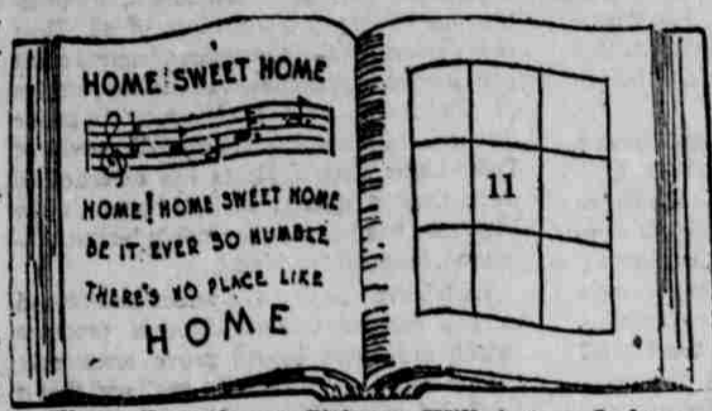 HOME! SWEET HOME
HOME! HOME SWEET HOME
BE IT EVER SO HUMBLE
THERE'S NO PLACE LIKE
HOME
11